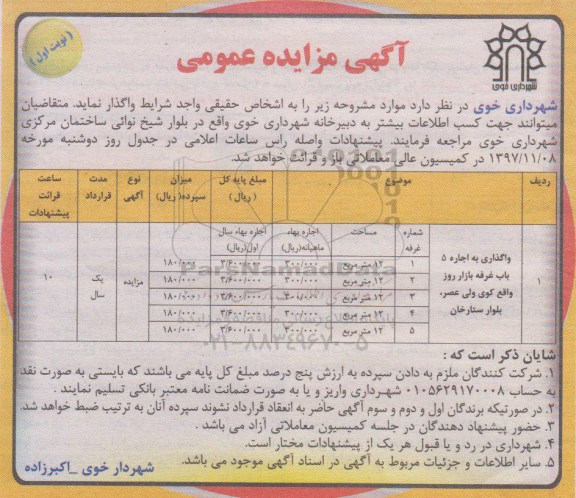 ( نوبت اول )
آگهی مزایده عمومی
شهرداری خوی
شهرداری خوی در نظر دارد موارد مشروحه زیر را به اشخاص حقیقی واجد شرایط واگذار نماید. متقاضیان
میتوانند جهت کسب اطلاعات بیشتر به دبیرخانه شهرداری خوی واقع در بلوار شیخ نوائی ساختمان مرکزی
شهرداری خوی مراجعه فرمایند. پیشنهادات واصله راس ساعات اعلامی در جدول روز دوشنبه مورخه
۱۳۹۷/۱۱/۰۸ در کمیسیون عالی معاملاتی باز و قرائت خواهد شد.
ردیف موضوع مبلغ پایه کل ( ریال ) میزان سپرده( ریال) نوع آگهی مدت قرارداد ساعت قرائت پیشنهادات
شماره غرفه مساحت اجاره بهاء ماهیانه(ریال) اجاره بهاء سال اول(ریال)
۱ واگذاری به اجاره ۵ باب غرفه بازار روز واقع کوی ولی عصر، بلوار ستارخان
۱ ۱۲ متر مربع ۳۰۰/۰۰۰ ۳/۶۰۰/۰۰۰ ۱۸۰/۰۰۰
۲ ۱۲ متر مربع ۳۰۰/۰۰۰ ۳/۶۰۰/۰۰۰ ۱۸۰/۰۰۰
۳ ۱۲ متر مربع ۳۰۰/۰۰۰ ۳/۶۰۰/۰۰۰ ۱۸۰/۰۰۰
۴ ۱۲ متر مربع ۳۰۰/۰۰۰ ۳/۶۰۰/۰۰۰ ۱۸۰/۰۰۰
۵ ۱۲ متر مربع ۳۰۰/۰۰۰ ۳/۶۰۰/۰۰۰ ۱۸۰/۰۰۰
مزایده یک سال ۱۰
ParsNamadData
۰۲۱-۸۸۳۴۹۶۷۰-۵
شایان ذکر است که :
۱. شرکت کنندگان ملزم به دادن سپرده به ارزش پنج درصد مبلغ کل پایه می باشند که بایستی به صورت نقد
به حساب ۰۱۰۵۶۲۹۱۷۰۰۰۸ شهرداری واریز و یا به صورت ضمانت نامه معتبر بانکی تسلیم نمایند .
۲. در صورتیکه برندگان اول و دوم و سوم آگهی حاضر به انعقاد قرارداد نشوند سپرده آنان به ترتیب ضبط خواهد شد.
۳. حضور پیشنهاد دهندگان در جلسه کمیسیون معاملاتی آزاد می باشد .
۴. شهرداری در رد و یا قبول هر یک از پیشنهادات مختار است.
۵. سایر اطلاعات و جزئیات مربوط به آگهی در اسناد آگهی موجود می باشد.
شهردار خوی _اکبرزاده